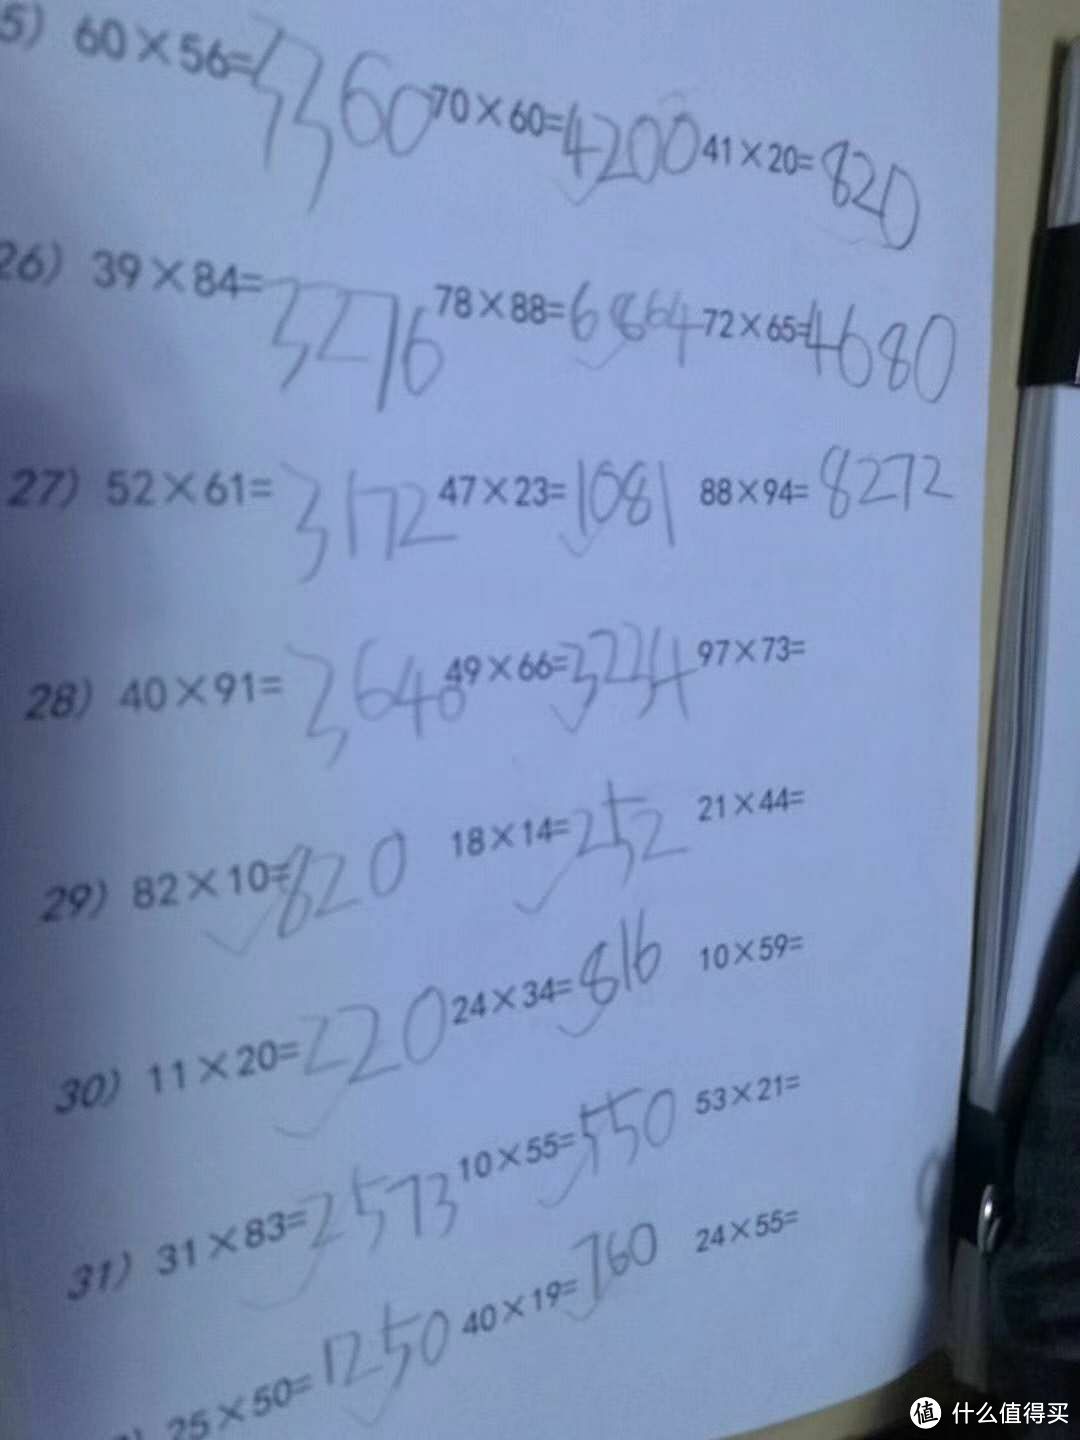 5) 60×56=3360 70×60=4200 41×20=820
26) 39×84=3276 78×88=6864 72×65=4680
27) 52×61=3172 47×23=1081 88×94=8272
28) 40×91=3640 49×66=3234 97×73=
29) 82×10=820 18×14=252 21×44=
30) 11×20=220 24×34=816 10×59=
31) 31×83=2573 10×55=550 53×21=
) 25×50=1250 40×19=760 24×55=
值 什么值得买